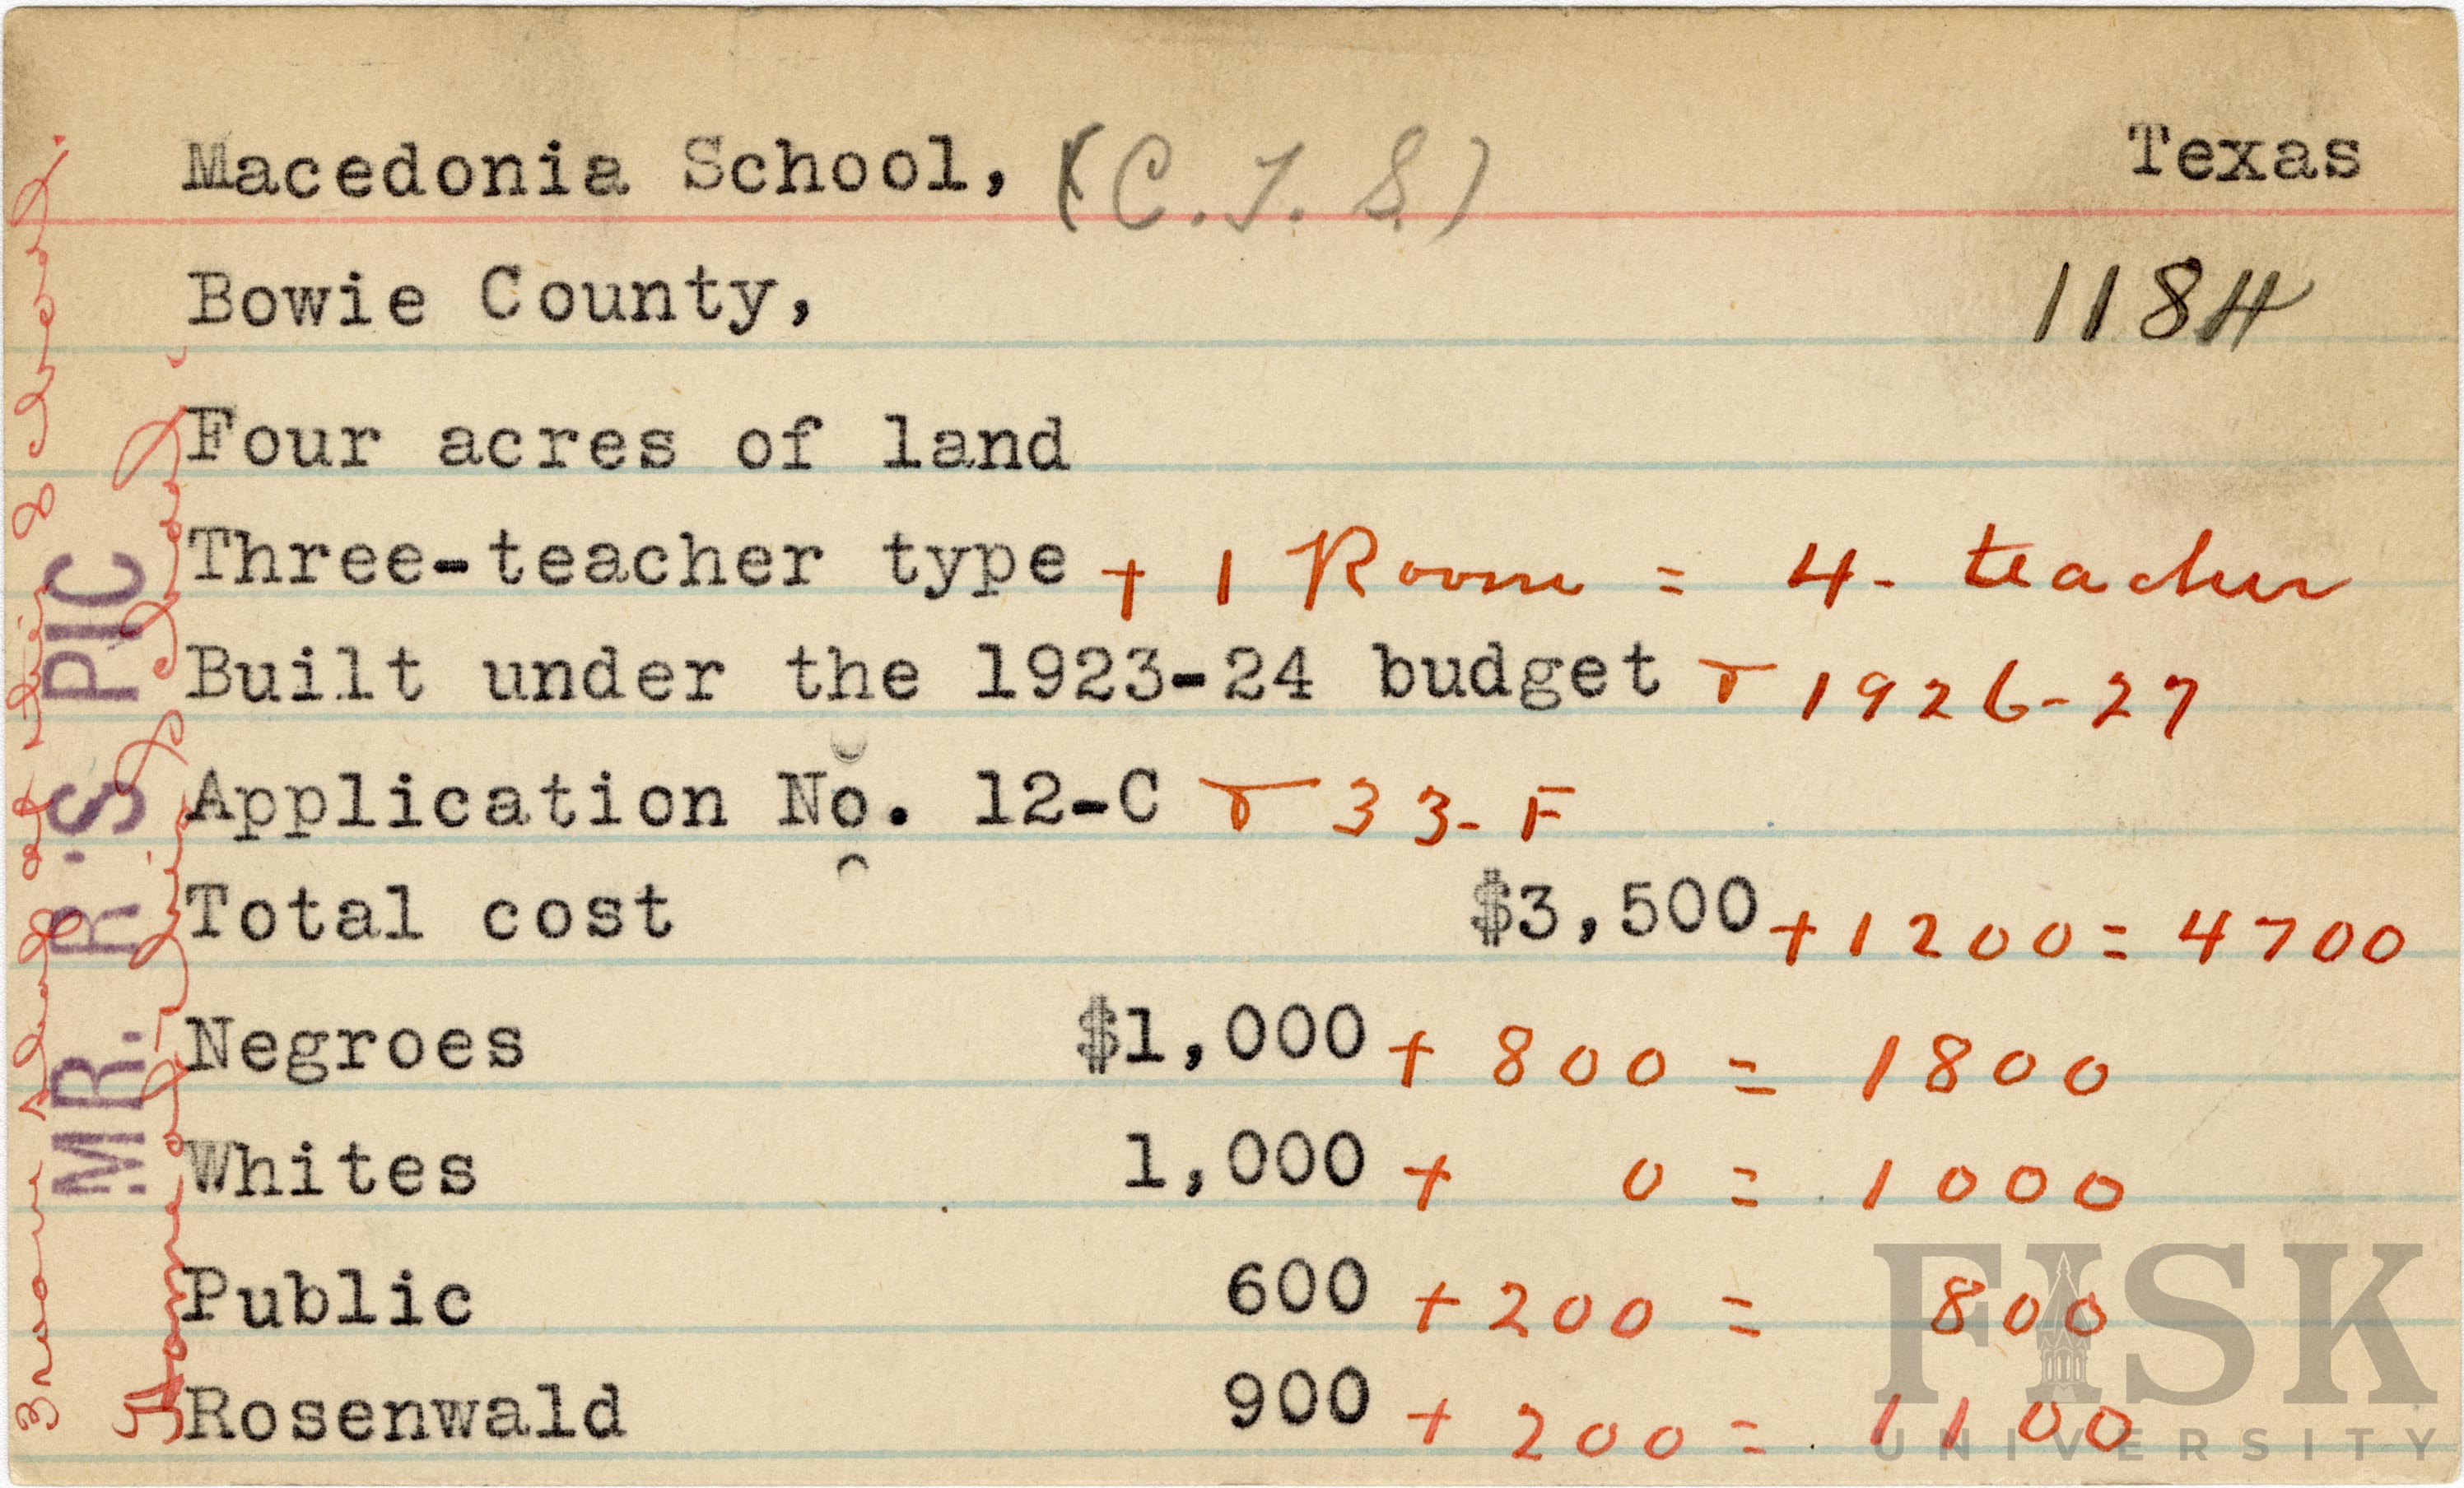 Macedonia School, (C. T. S.) Texas
Bowie County, 1184
Four acres of land
Three-teacher type + 1 Room = 4- teacher
Built under the 1923-24 budget & 1926-27
Application No. 12-C & 33-F
Total cost $3,500 + 1200 = 4700
Negroes $1,000 + 800 = 1800
Whites 1,000 + 0 = 1000
Public 600 + 200 = 800
Rosenwald 900 + 200 = 1100
MR. R'S PIC
FISK
UNIVERSITY